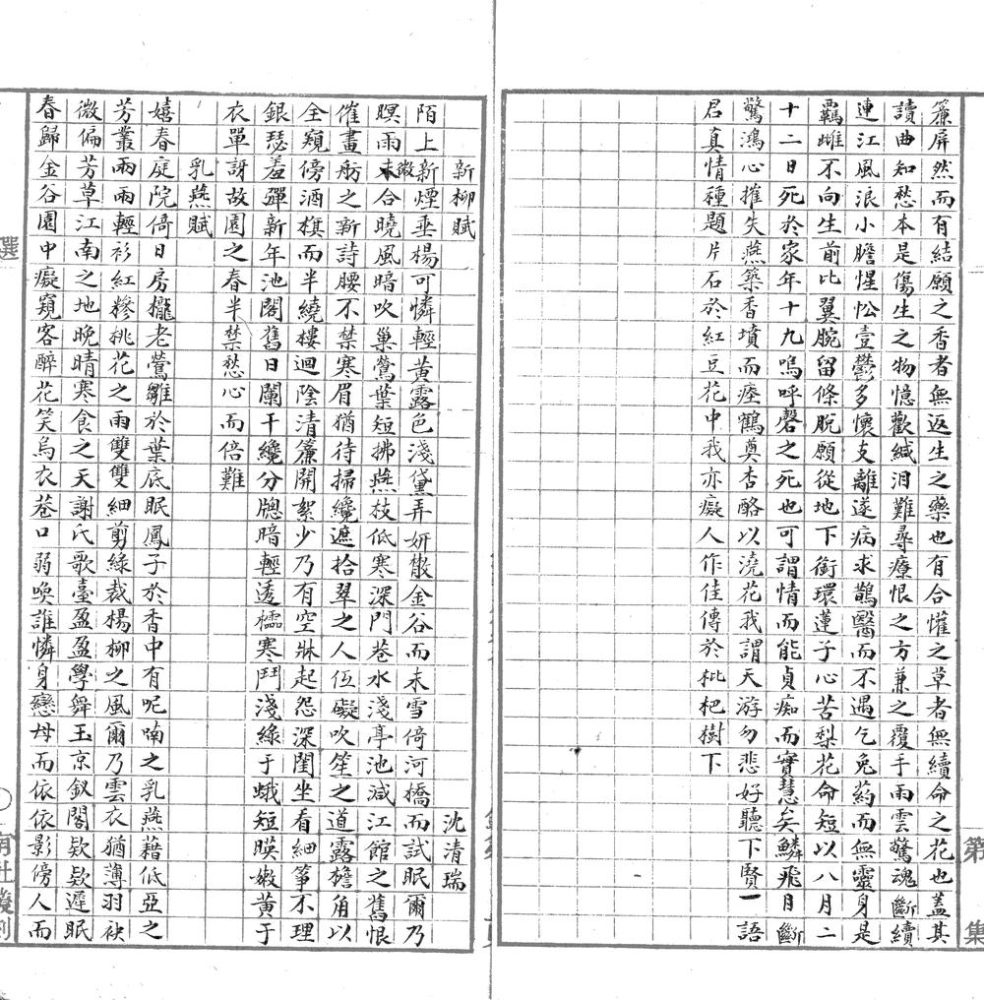 第 集
簾屏然而有結願之香者無返生之藥也有合懽之草者無續命之花也蓋其
讀曲知愁本是傷生之物憶歡緘淚難尋療恨之方兼之覆手雨雲驚魂斷續
連江風浪小膽惺忪壹鬱多懷支離遂病求鵲醫而不遇乞兔葯而無靈身是
羈雌不向生前比翼腕留條脫願從地下銜環蓮子心苦梨花命短以八月二
十二日死於家年十九嗚呼磬之死也可謂情而能貞痴而實慧矣鱗飛目斷
驚鴻心摧失燕築香墳而瘞鶴奠杏酪以澆花我謂天游勿悲好聽下賢一語
君真情種題片石於紅豆花中我亦癡人作佳傳於枇杷樹下
新柳賦 沈清瑞
陌上新煙垂楊可憐輕黃露色淺黛弄妍散金谷而未雪倚河橋而試眠爾乃
暝雨未合曉風暗吹巢鶯葉短拂燕枝低寒深門巷水淺亭池減江館之舊恨
催畫舫之新詩腰不禁寒眉猶待掃纔遮拾翠之人伍礙吹笙之道露檐角以
全窺傍酒旗而半繞樓迴陰清簾開絮少乃有空牀起怨深閨坐看細箏不理
銀瑟羞彈新年池閣舊日闌干纔分牕暗輕透檽寒鬥淺綠于蛾短暎嫩黃于
衣單訝故園之春半禁愁心而倍難
乳燕賦
嬉春庭院倚日房櫳老鶯雛於葉底眠鳳子於香中有呢喃之乳燕藉低亞之
芳叢兩兩輕衫紅糝桃花之雨雙雙細剪綠裁楊柳之風爾乃雲衣猶薄羽袂
微偏芳草江南之地晚晴寒食之天謝氏歌臺盈盈學舞玉京釵閣欵欵遲眠
春歸金谷園中癡窺客醉花笑烏衣巷口弱喚誰憐身戀母而依依影傍人而
選